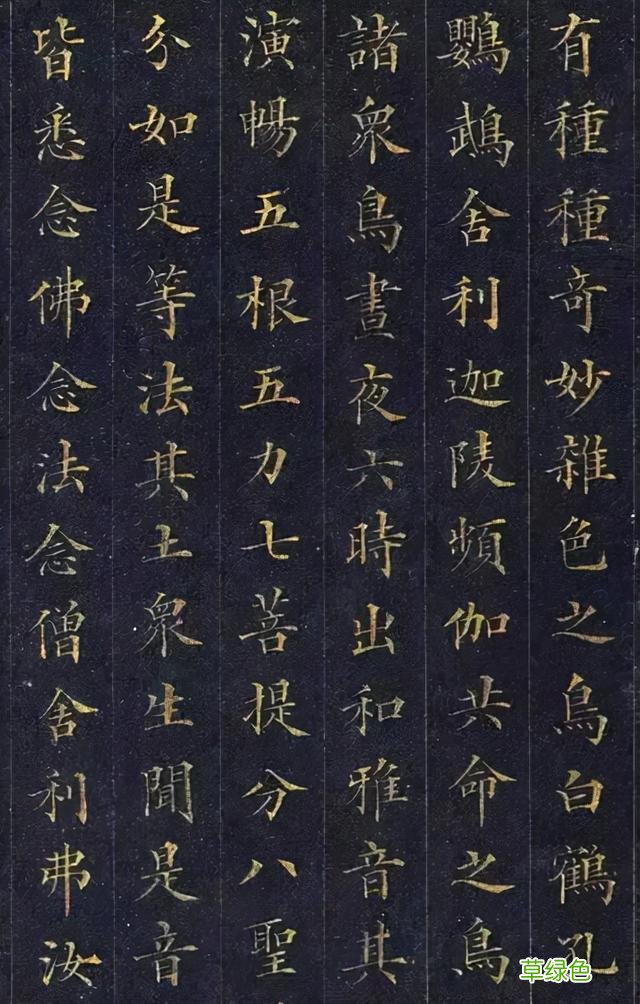 有種種奇妙雜色之鳥白鶴孔
鸚鵡舍利迦陵頻伽共命之鳥
諸衆鳥晝夜六時出和雅音其
演暢五根五力七菩提分八聖
分如是等法其土衆生聞是音
皆悉念佛念法念僧舍利弗汝
草绿色